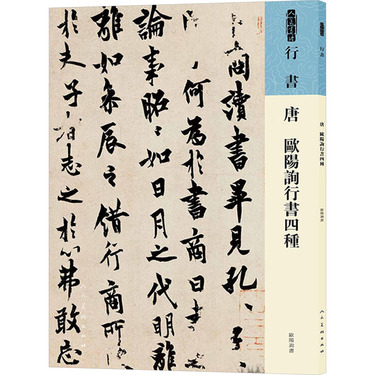 行書
唐 歐陽詢行書四種
商讀書畢見孔子
何為於書商曰書
論事昭々如日月之代明離
離如參辰之錯行商所
於夫子者志之於心弗敢忘
行書
唐 歐陽詢行書四種
歐陽詢書
人民美術出版社
歐陽詢書